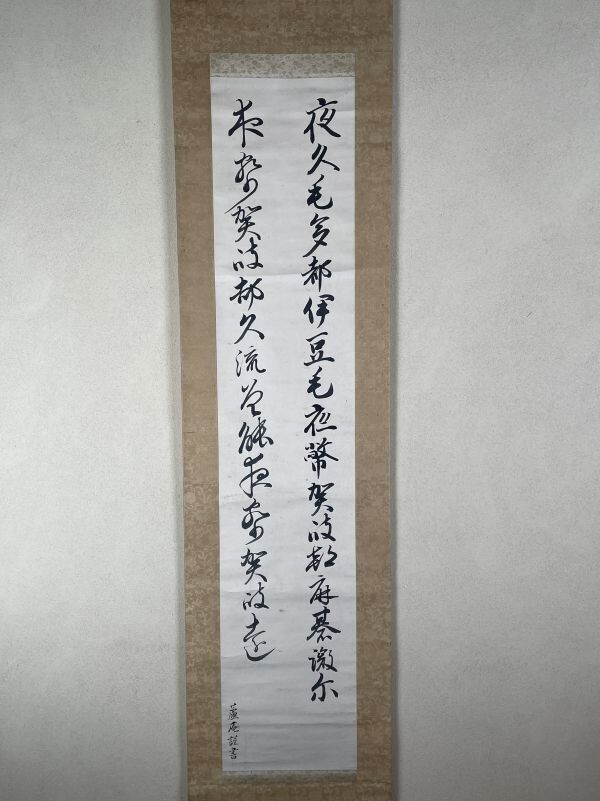 夜久毛多都伊豆毛夜幣賀岐都麻碁微尓
夜幣賀岐都久流曽能夜幣賀岐遠
蘆庵謹書